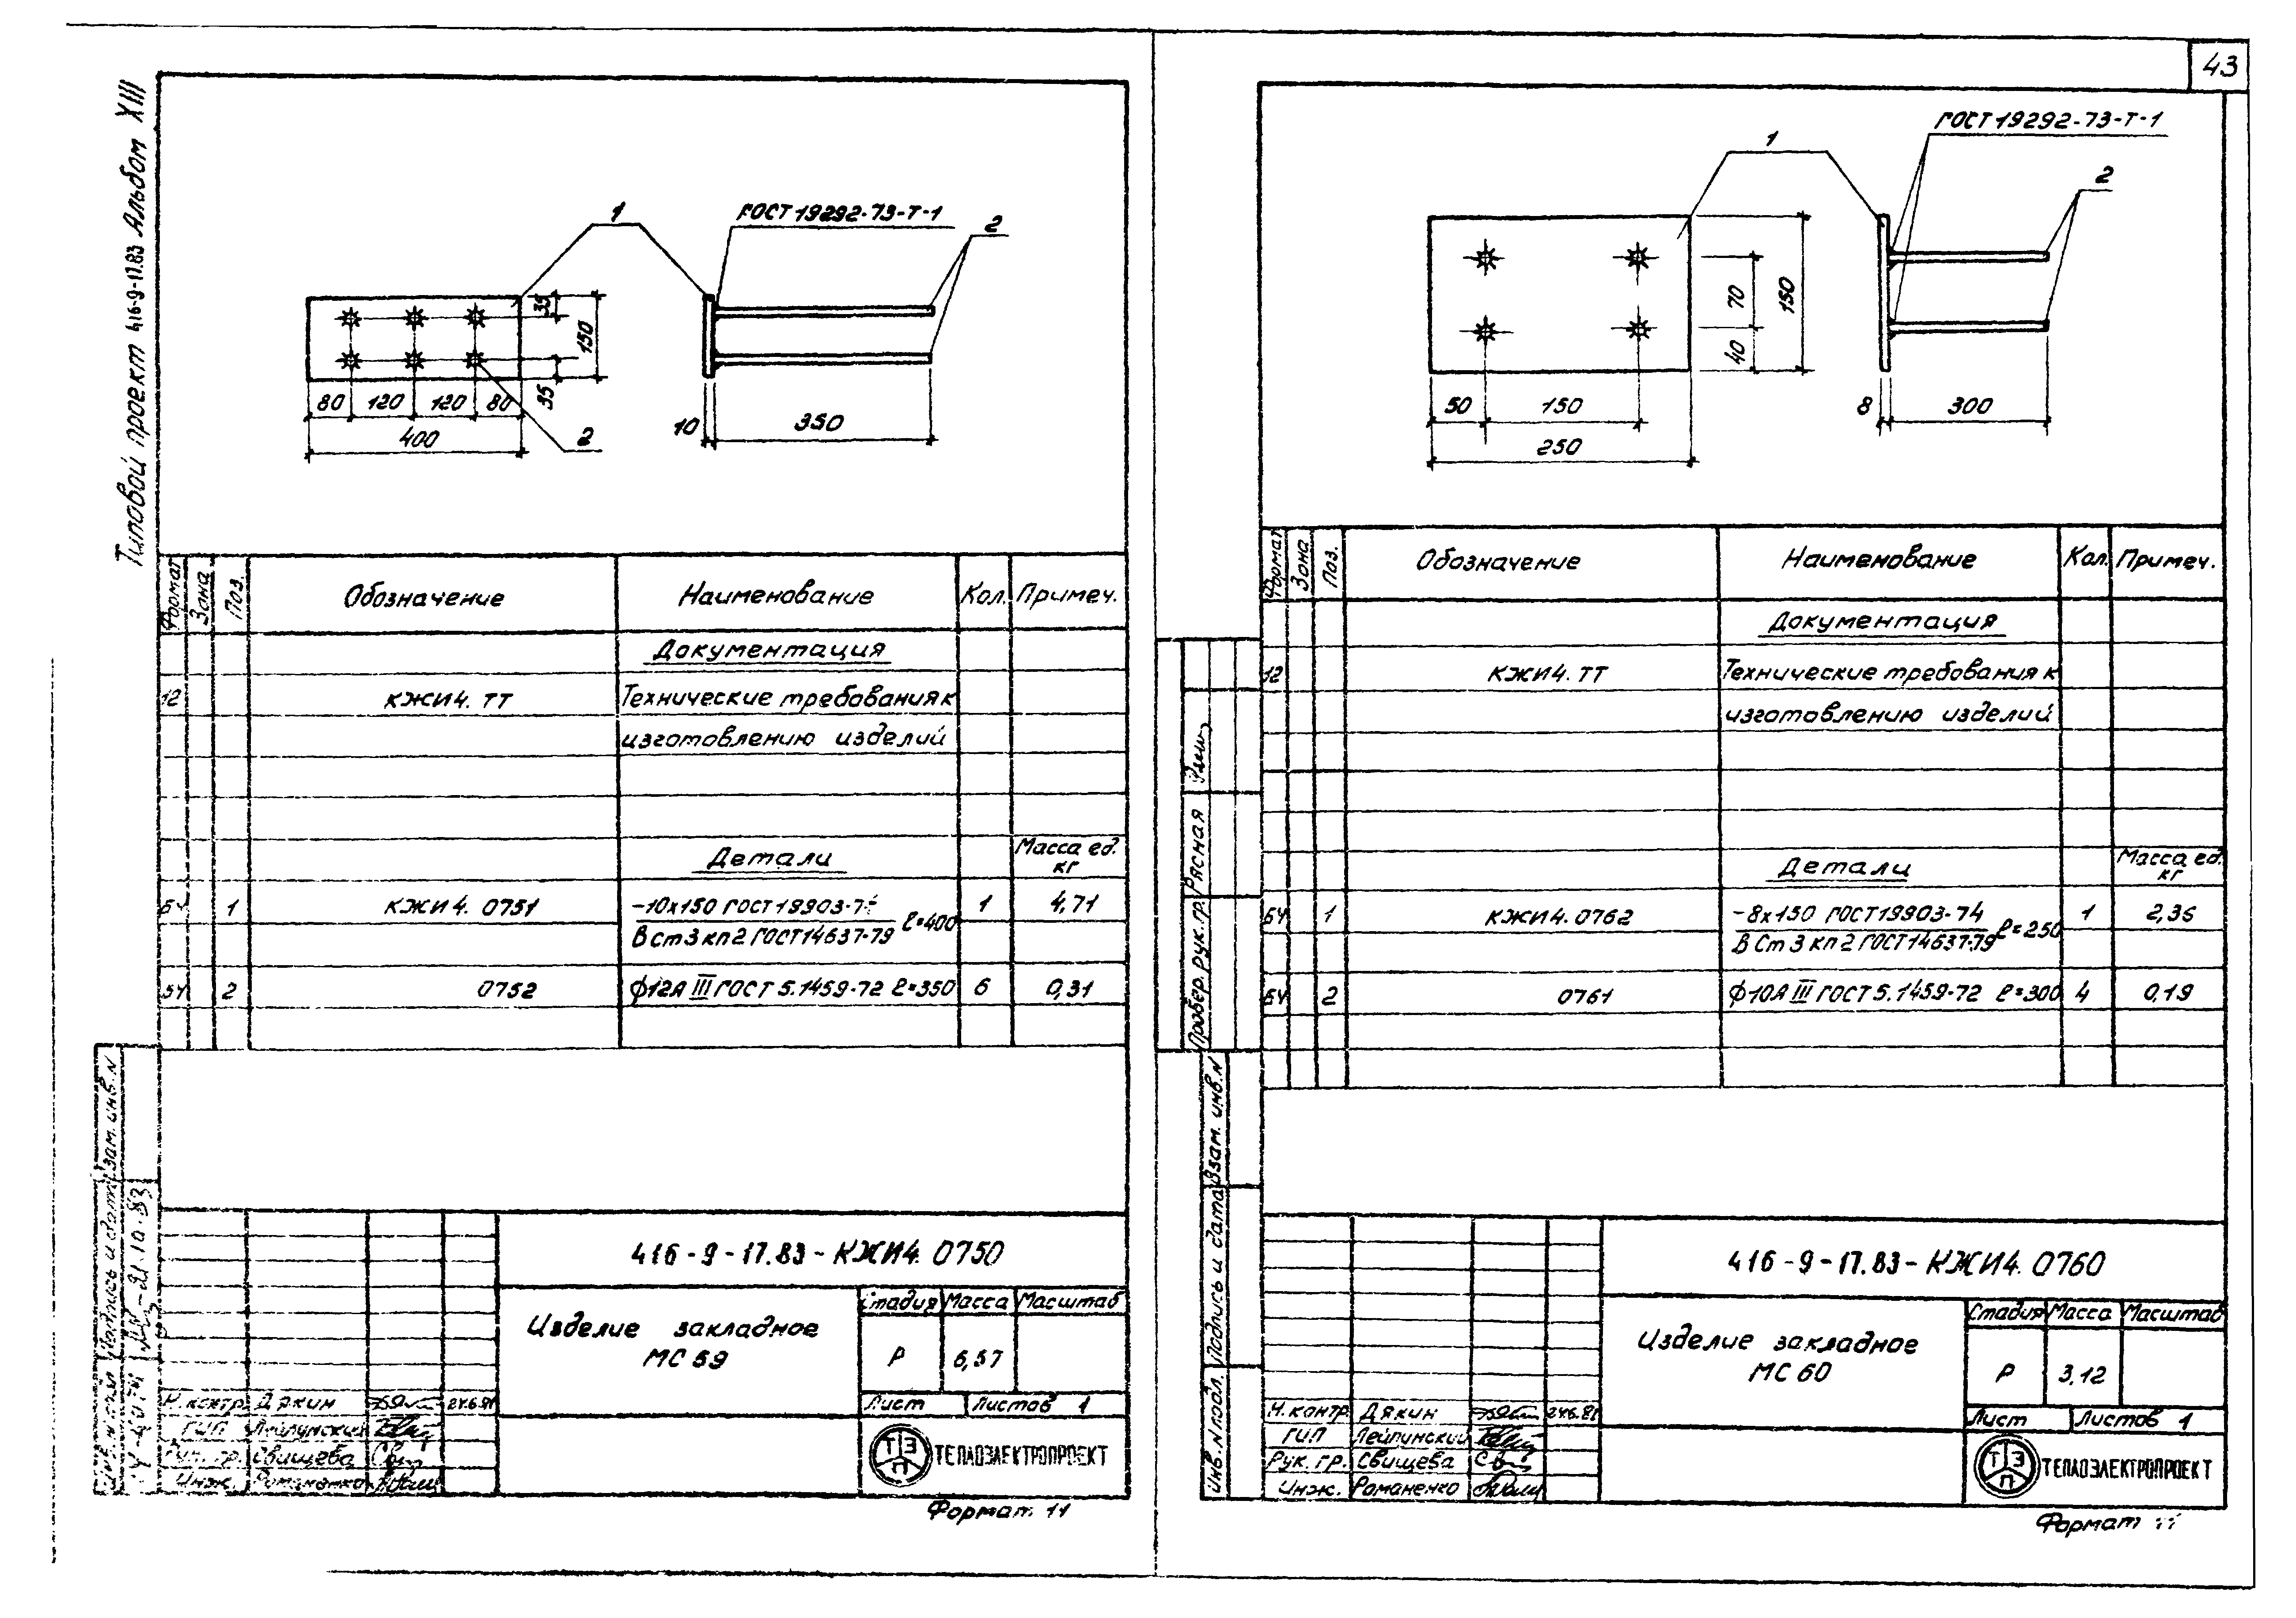 43
Типовой проект 416-9-17.83 Альбом XIII
1
ГОСТ 19292-73-Т-1
2
35
150
35
80 120 120 80
400
2
10
350
Формат Зона Поз. Обозначение Наименование Кол. Примеч.
Документация
12 КЖИ4. ТТ Технические требования к
изготовлению изделий
Детали Масса ед. кг
БЧ 1 КЖИ4. 0751 -10х150 ГОСТ 19903-74 ℓ=400 1 4,71
ВСт3кп2 ГОСТ 14637-79
БЧ 2 0752 ф12АIII ГОСТ 5.1459-72 ℓ=350 6 0,31
416-9-17.83-КЖИ4. 0750
Изделие закладное
МС 59
Стадия Масса Масштаб
Р 6,57
Лист Листов 1
Н.контр. Дякин 24.6.81
ГИП Лейпунский
Рук. гр. Свищева
Инж. Романенко
ТЭП
ТЕПЛОЭЛЕКТРОПРОЕКТ
Формат 11
Взам. инв. N
Подпись и дата 21.10.83
Инв. N подл.
1
ГОСТ 19292-73-Т-1
2
70
150
40
50 150
250
8
300
Формат Зона Поз. Обозначение Наименование Кол. Примеч.
Документация
12 КЖИ4. ТТ Технические требования к
изготовлению изделий
Детали Масса ед. кг
БЧ 1 КЖИ4. 0762 -8х150 ГОСТ 19903-74 ℓ=250 1 2,36
ВСт3кп2 ГОСТ 14637-79
БЧ 2 0761 ф10АIII ГОСТ 5.1459-72 ℓ=300 4 0,19
Провер. Рук. гр. Рясная
Взам. инв. N
Подпись и дата
Инв. N подл.
416-9-17.83-КЖИ4. 0760
Изделие закладное
МС 60
Стадия Масса Масштаб
Р 3,12
Лист Листов 1
Н.контр. Дякин 24.6.81
ГИП Лейпунский
Рук. гр. Свищева
Инж. Романенко
ТЭП
ТЕПЛОЭЛЕКТРОПРОЕКТ
Формат 11